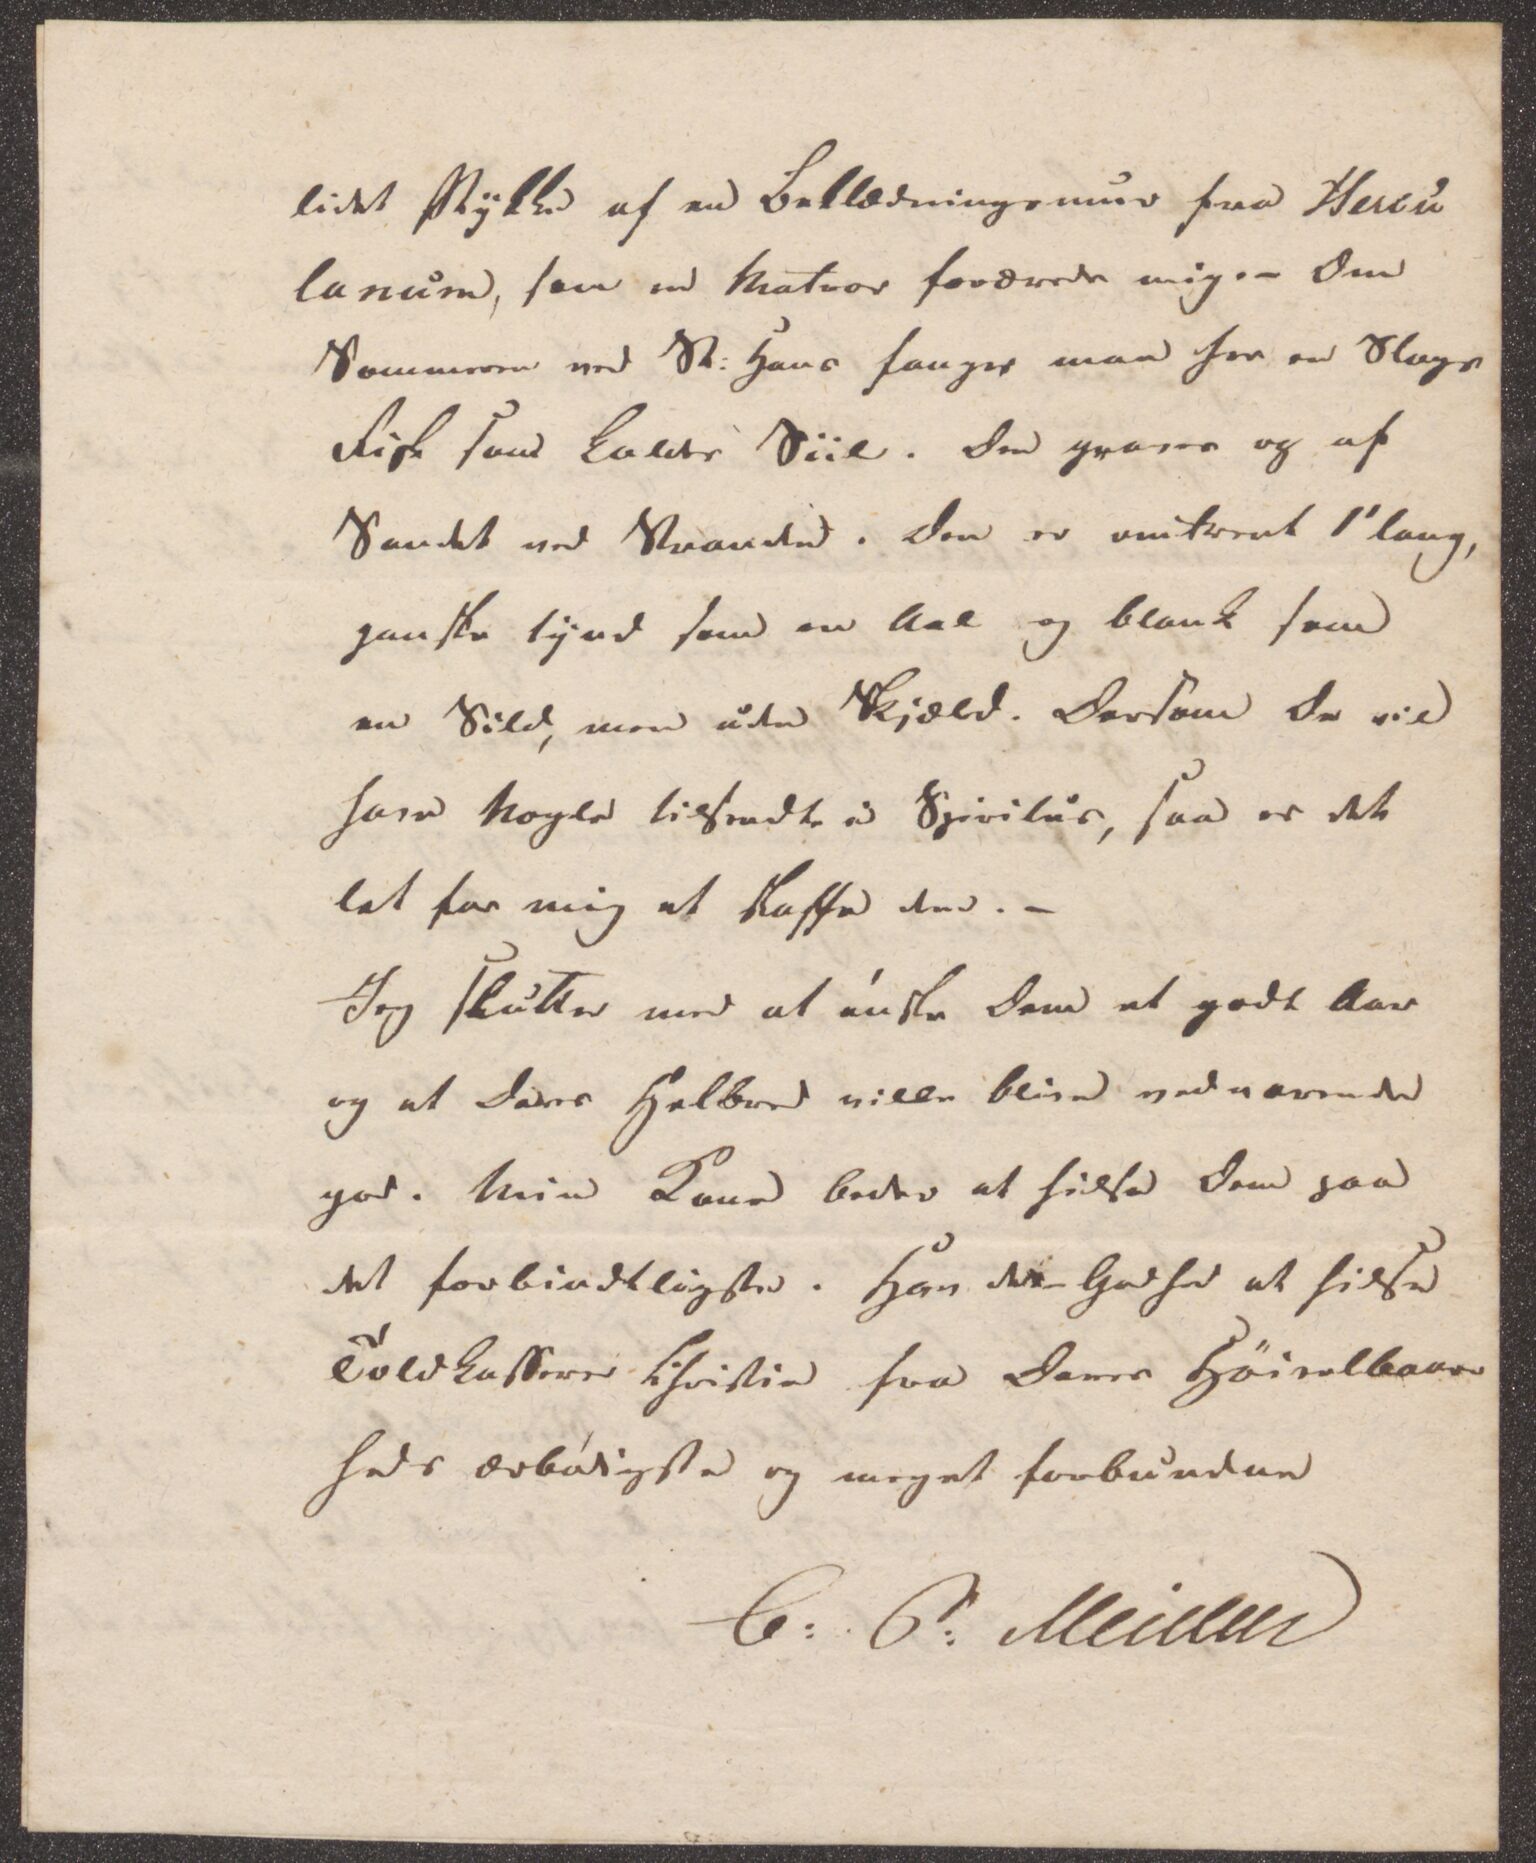 lidet Stykke af en Beklædningsmuur fra Hercu
lanum, som en Matros forærede mig. – Om
Sommeren ved St: Hans fanges man her en Slags
Fisk som kaldes Siil. Den graves og af
Sandet ved Stranden. Den er omtrent 1' lang,
ganske tynd som en Aal og blank som
en Sild, men uden Skjæld. Dersom De vil
have Nogle tilsendte i Spiritus, saa er det
let for mig at skaffe dem. –
Jeg slutter med at ønske Dem et godt Aar
og at Deres Helbred ville blive vedvarende
god. Min Kone beder at hilse Dem paa
det forbindtligste. Hav den Godhed at hilse
Toldkasserer Christie fra Deres Höivelbaaren
heds ærbødigste og meget forbundne
C: P: